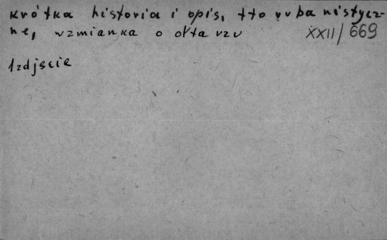 krótka historia i opis, tło urbanistycz
ne, wzmianka o ołtarzu
XXII/669
1zdjęcie